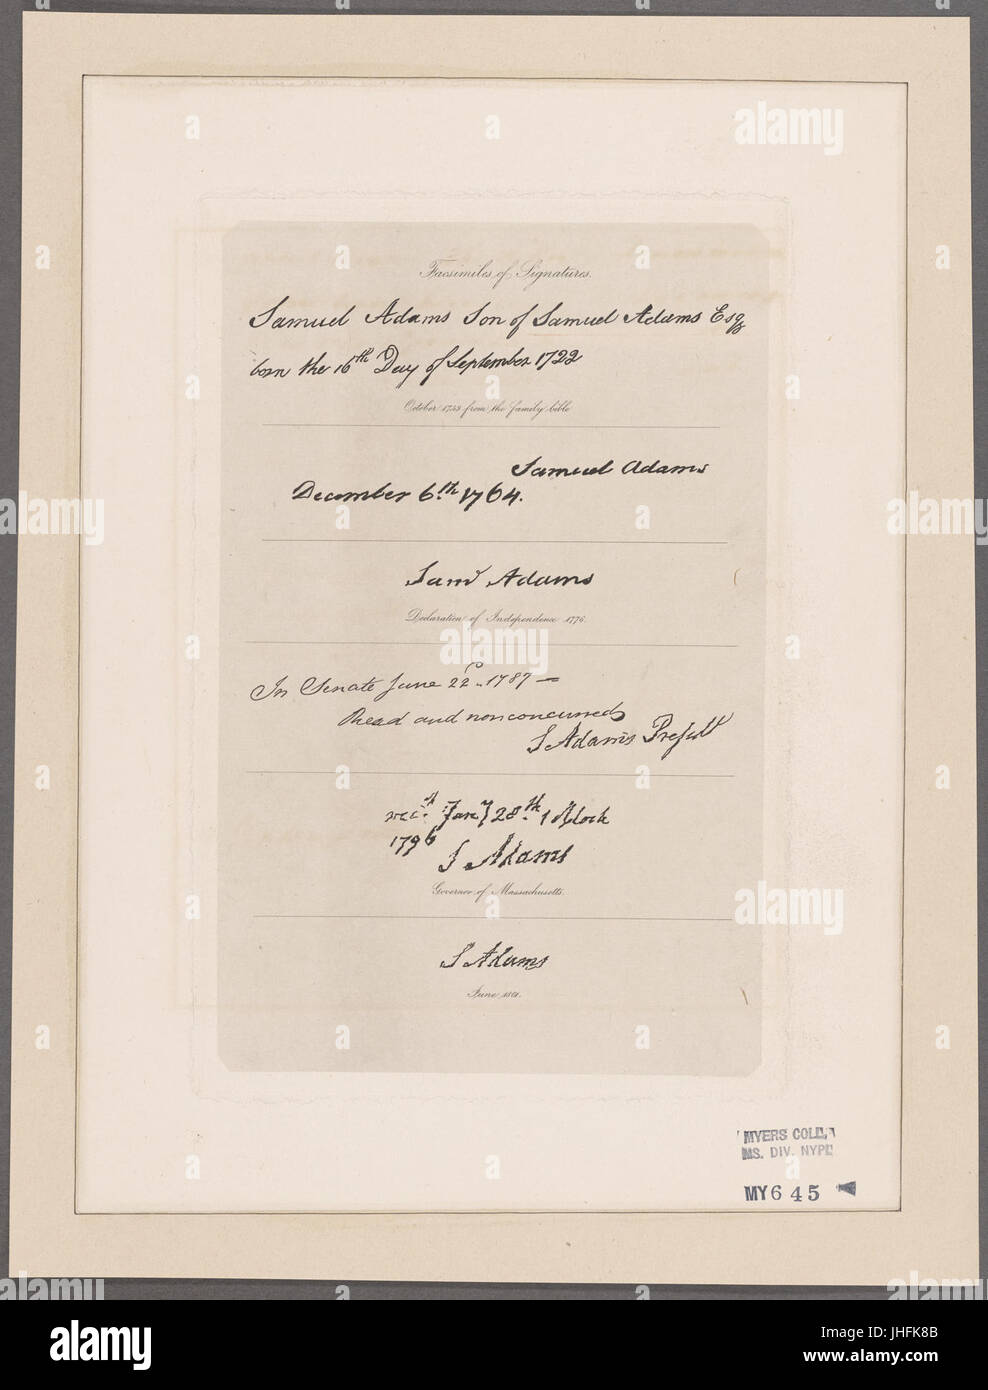 Facsimiles of Signatures.
Samuel Adams Son of Samuel Adams Esq
born the 16th Day of September 1722
October 1753 from the family bible
Samuel Adams
December 6th 1764.
Saml Adams
Declaration of Independence 1776.
In Senate June 22d 1787 —
Read and nonconcurred
S Adams Presidt
recd Jany 28th 1 Clock
1796
S Adams
Governor of Massachusetts.
S Adams
June 1801.
MYERS COLL,
MS. DIV. NYPL
MY645
alamy
alamy
alamy
alamy
alamy
Image ID: JHFK8B
www.alamy.com